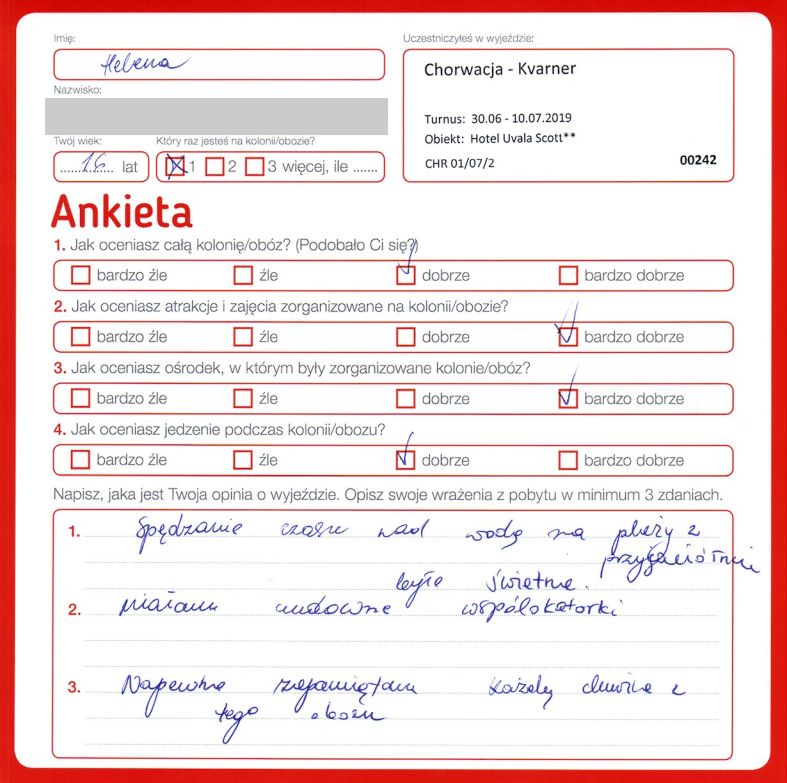 Imię:
Helena
Uczestniczyłeś w wyjeździe:
Chorwacja - Kvarner
Turnus: 30.06 - 10.07.2019
Obiekt: Hotel Uvala Scott**
CHR 01/07/2
00242
Nazwisko:
Twój wiek:
16 lat
Który raz jesteś na kolonii/obozie?
1 2 3 więcej, ile .......
Ankieta
1. Jak oceniasz całą kolonię/obóz? (Podobało Ci się?)
bardzo źle źle dobrze bardzo dobrze
2. Jak oceniasz atrakcje i zajęcia zorganizowane na kolonii/obozie?
bardzo źle źle dobrze bardzo dobrze
3. Jak oceniasz ośrodek, w którym były zorganizowane kolonie/obóz?
bardzo źle źle dobrze bardzo dobrze
4. Jak oceniasz jedzenie podczas kolonii/obozu?
bardzo źle źle dobrze bardzo dobrze
Napisz, jaka jest Twoja opinia o wyjeździe. Opisz swoje wrażenia z pobytu w minimum 3 zdaniach.
1. Spędzanie czasu nad wodą na plaży z
przyjaciółmi
było świetne.
2. Miałam cudowne współlokatorki
3. Napewno zapamiętam każdą chwilę z
tego obozu